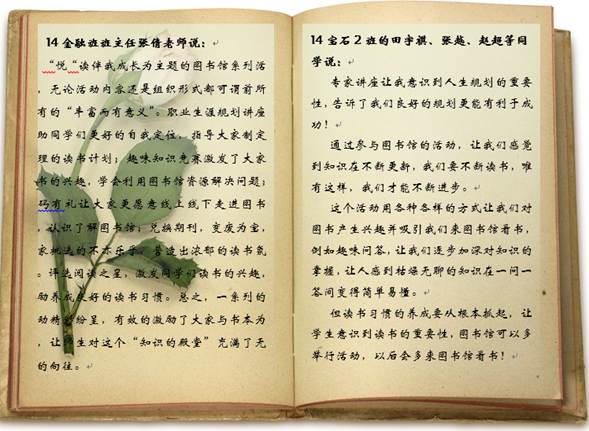 14金融班班主任张倩老师说：
“悦“读伴我成长为主题的图书馆系列活
，无论活动内容还是组织形式都可谓前所
有的“丰富而有意义”。职业生涯规划讲座
助同学们更好的自我定位，指导大家制定
理的读书计划；趣味知识竞赛激发了大家
书的兴趣，学会利用图书馆资源解决问题；
码有礼让大家更愿意线上线下走进图书
，认识了解图书馆；兑换期刊，变废为宝，
家挑选的不亦乐乎，营造出浓郁的读书氛
。评选阅读之星，激发同学们读书的兴趣，
励养成良好的读书习惯。总之，一系列的
动精彩纷呈，有效的激励了大家与书本为
，让师生对这个“知识的殿堂”充满了无
的向往。
14宝石2班的田宇祺、张越、赵超等同
学说：
专家讲座让我意识到人生规划的重要
性，告诉了我们良好的规划更能有利于成
功！
通过参与图书馆的活动，让我们感觉
到知识在不断更新，我们要不断读书，唯
有这样，我们才能不断进步。
这个活动用各种各样的方式让我们对
图书产生兴趣并吸引我们来图书馆看书，
例如趣味问答，让我们逐步加深对知识的
掌握，让人感到枯燥无聊的知识在一问一
答间变得简单易懂。
但读书习惯的养成要从根本抓起，让
学生意识到读书的重要性，图书馆可以多
举行活动，以后会多来图书馆看书！